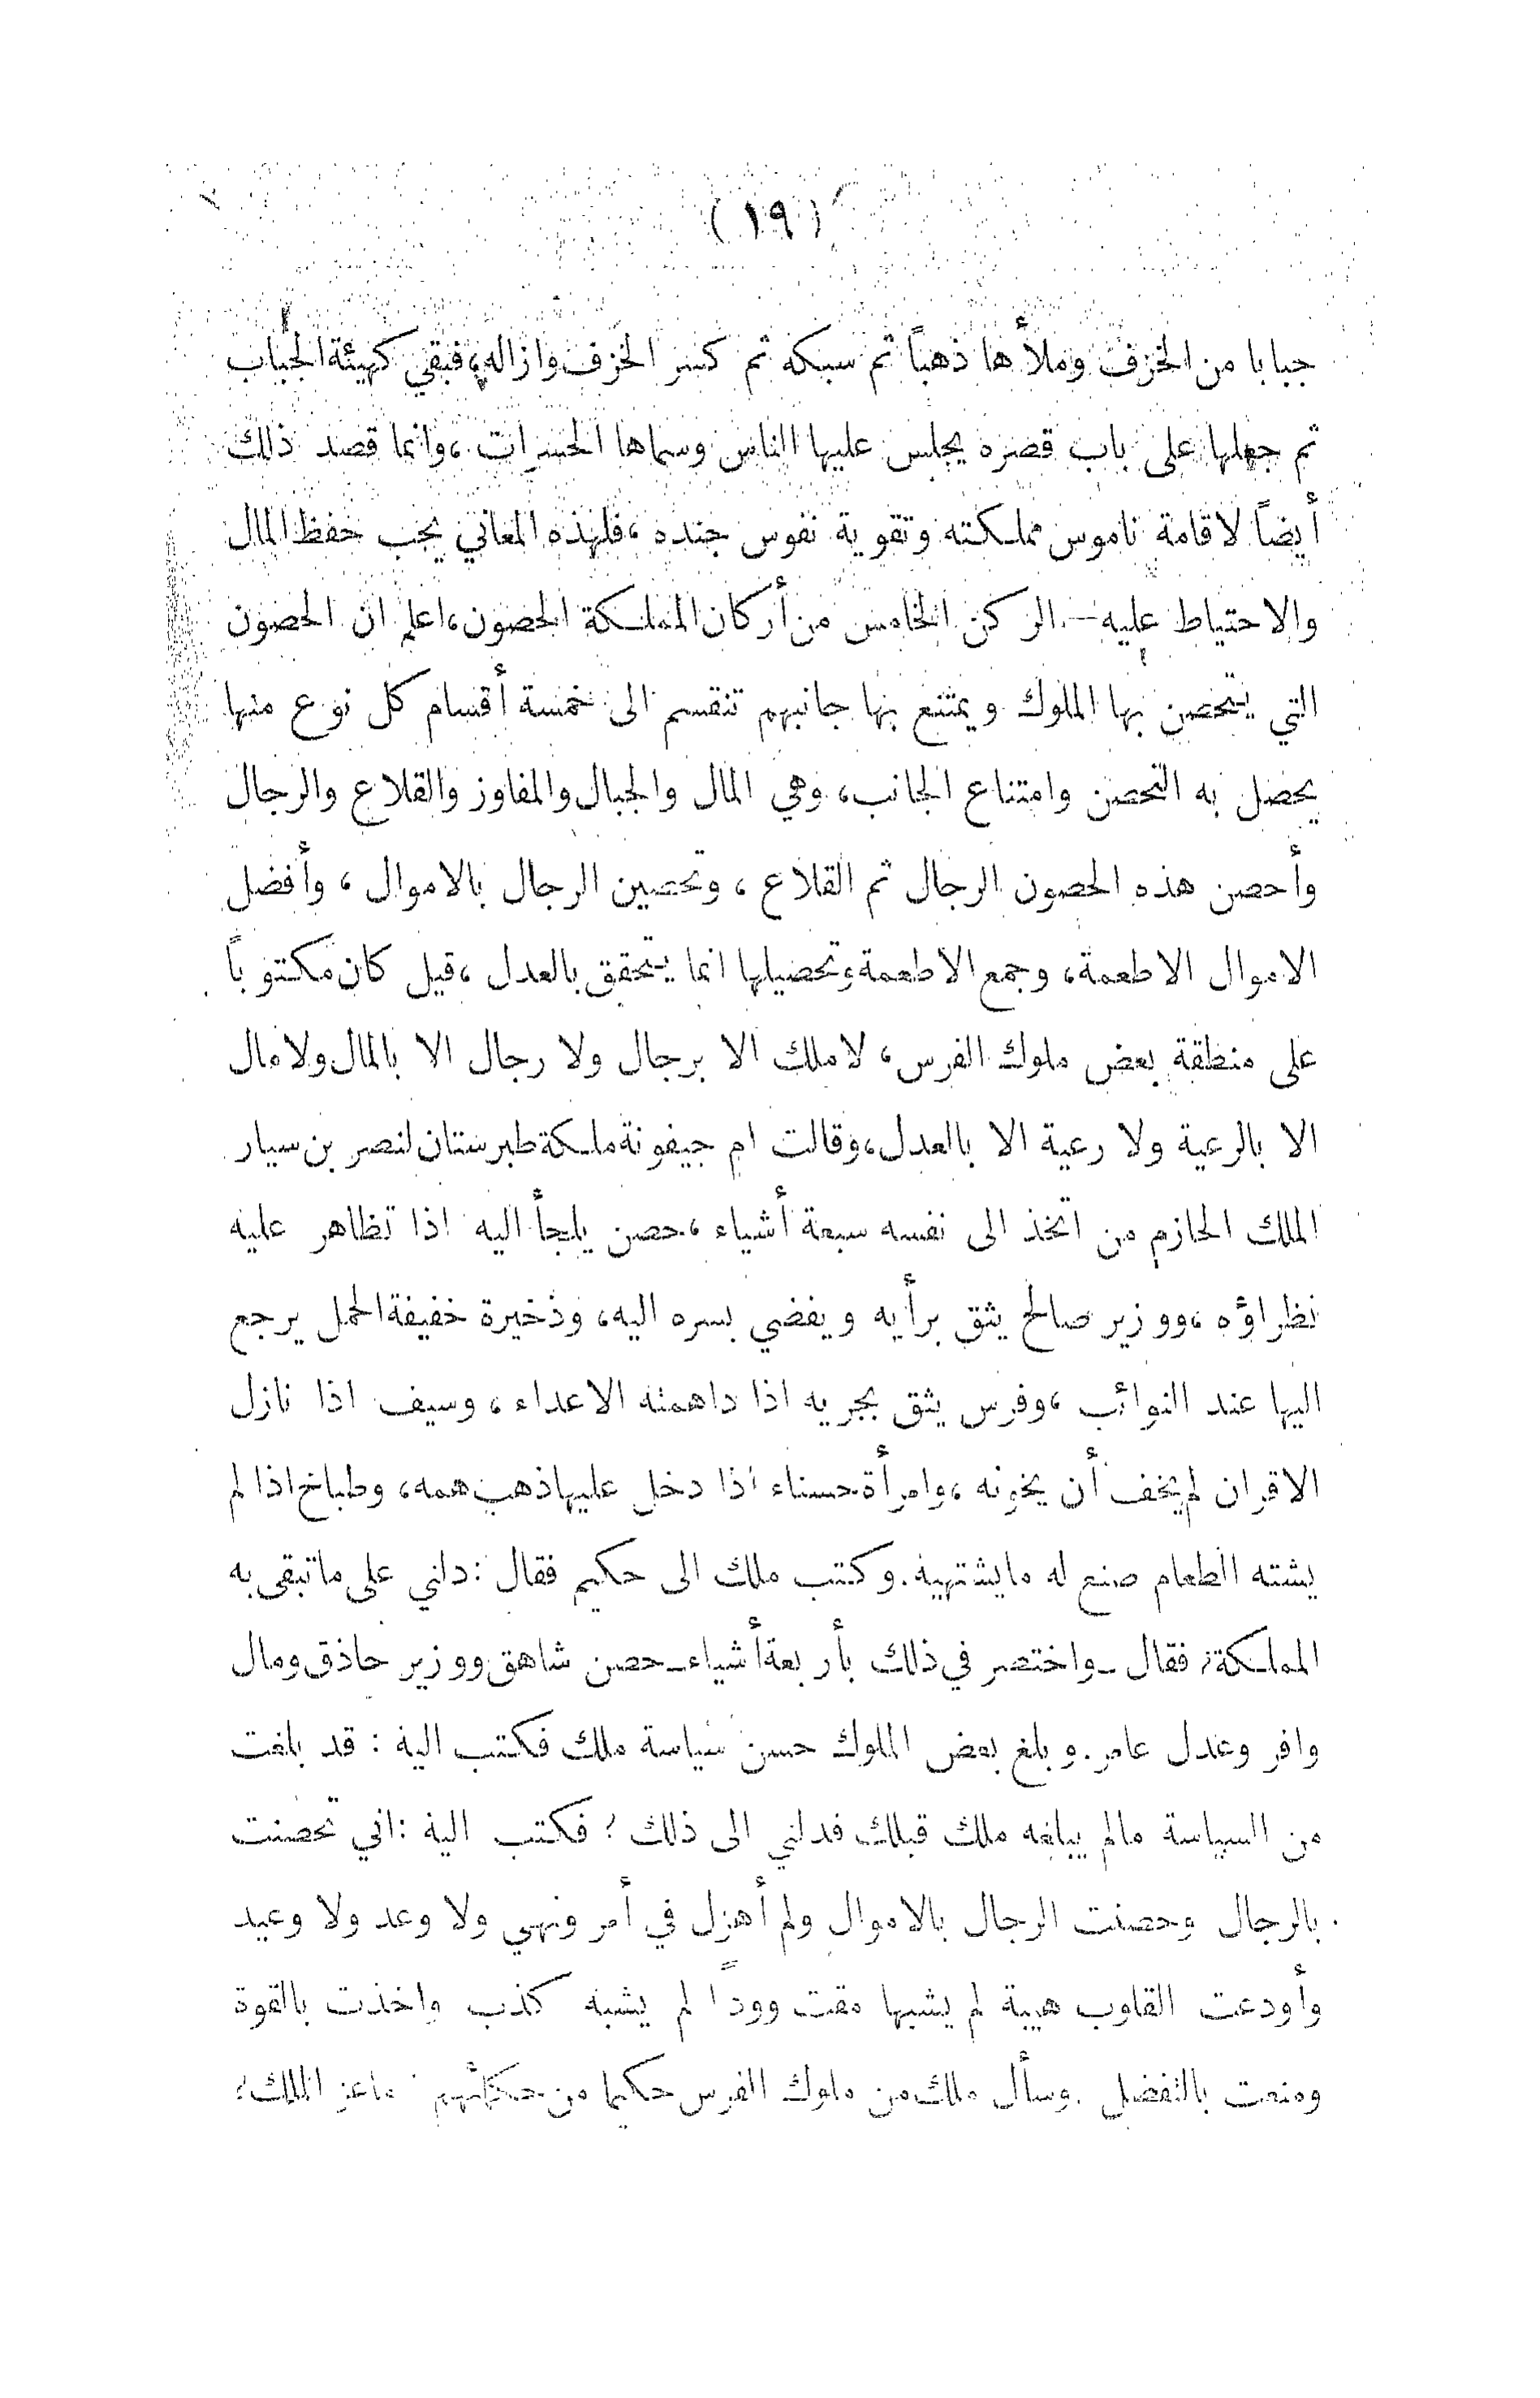 (١٩)
جبابا من الخزف وملأها ذهباً ثم سبكه ثم كسر الخزف وازاله، فبقي كهيئة الجباب
ثم جعلها على باب قصره يجلس عليها الناس وسماها الحسرات، وانما قصد ذلك
أيضاً لاقامة ناموس مملكته وتقوية نفوس جنده، فلهذه المعاني يجب حفظ المال
والاحتياط عليه—. الركن الخامس من أركان المملكة الحصون، اعلم ان الحصون
التي يتحصن بها الملوك ويمتنع بها جانبهم تنقسم الى خمسة أقسام كل نوع منها
يحصل به التحصن وامتناع الجانب، وهي المال والجبال والمفاوز والقلاع والرجال
وأحصن هذه الحصون الرجال ثم القلاع، وتحصين الرجال بالاموال، وأفضل
الاموال الاطعمة، وجمع الاطعمة وتحصيلها انما يتحقق بالعدل، قيل كان مكتوباً
على منطقة بعض ملوك الفرس، لا ملك الا برجال ولا رجال الا بالمال ولا مال
الا بالرعية ولا رعية الا بالعدل، وقالت ام جيفونة ملكة طبرستان لنصر بن سيار
الملك الحازم من اتخذ الى نفسه سبعة أشياء، حصن يلجأ اليه اذا تظاهر عليه
نظراؤه، ووزير صالح يثق برأيه ويفضي بسره اليه، وذخيرة خفيفة الحمل يرجع
اليها عند النوائب، وفرس يثق بجريه اذا داهمته الاعداء، وسيف اذا نازل
الاقران لم يخف أن يخونه، وامرأة حسناء اذا دخل عليها ذهب همه، وطباخ اذا لم
يشته الطعام صنع له ما يشتهيه. وكتب ملك الى حكيم فقال: دلني على ما تبقى به
المملكة، فقال ـ واختصر في ذلك بأربعة أشياء ـ حصن شاهق ووزير حاذق ومال
وافر وعدل عامر. وبلغ بعض الملوك حسن سياسة ملك فكتب اليه: قد بلغت
من السياسة مالم يبلغه ملك قبلك فدلني الى ذلك؟ فكتب اليه: اني تحصنت
بالرجال وحصنت الرجال بالاموال ولم أهزل في أمر ونهي ولا وعد ولا وعيد
وأودعت القلوب هيبة لم يشبها مقت ووداً لم يشبه كذب واخذت بالقوة
ومنعت بالتفضل. وسأل ملك من ملوك الفرس حكيما من حكمائهم ماعز الملك؟